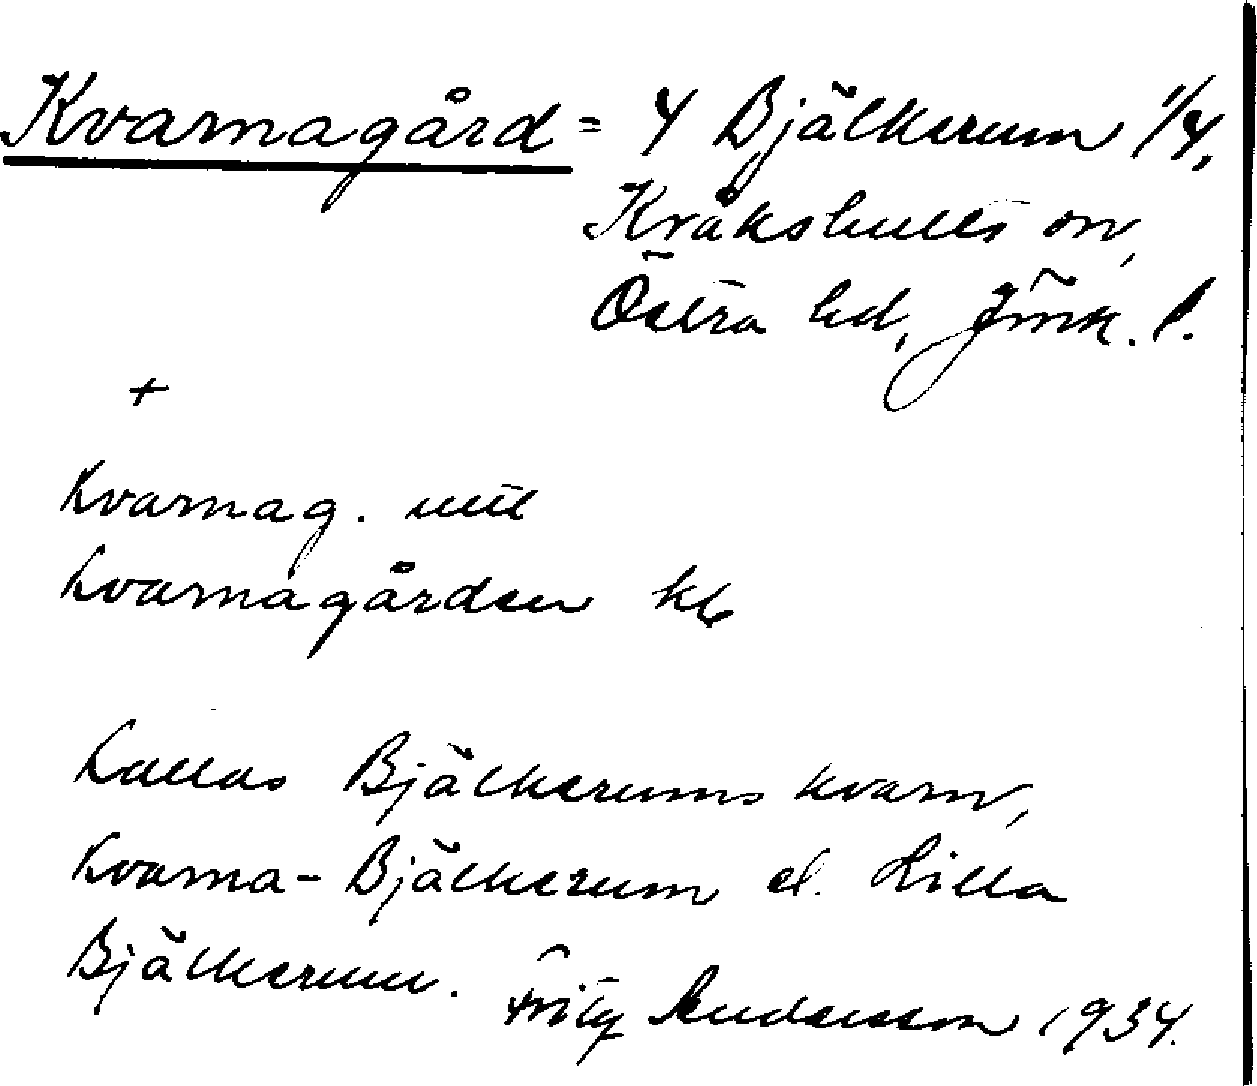 Kvarnagård = 4 Bjälkerum 1/4,
Kråkshults sn,
Östra hd, Jönk. l.
+
Kvarnag. utt
Kvarnagården kb
Kallas Bjälkerums kvarn,
Kvarna-Bjälkerum el. Lilla
Bjälkerum. Fritz Andersson 1934.